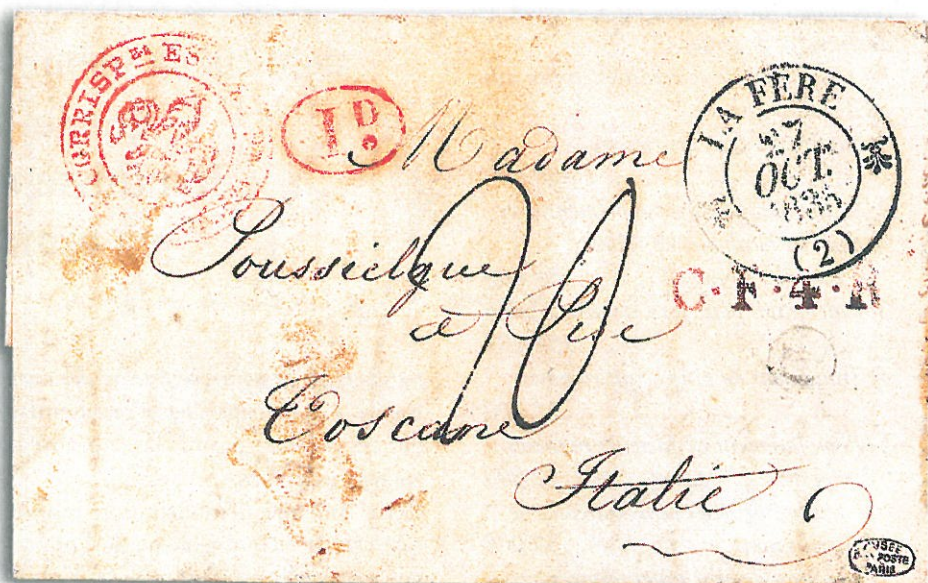 CORRISPza ES
I.D.
LA FERE
27
OCT.
1835
(2)
C.F.4.R
Madame
Poussielgue
a Pise
Toscane
Italie
20
MUSÉE
POSTE
PARIS